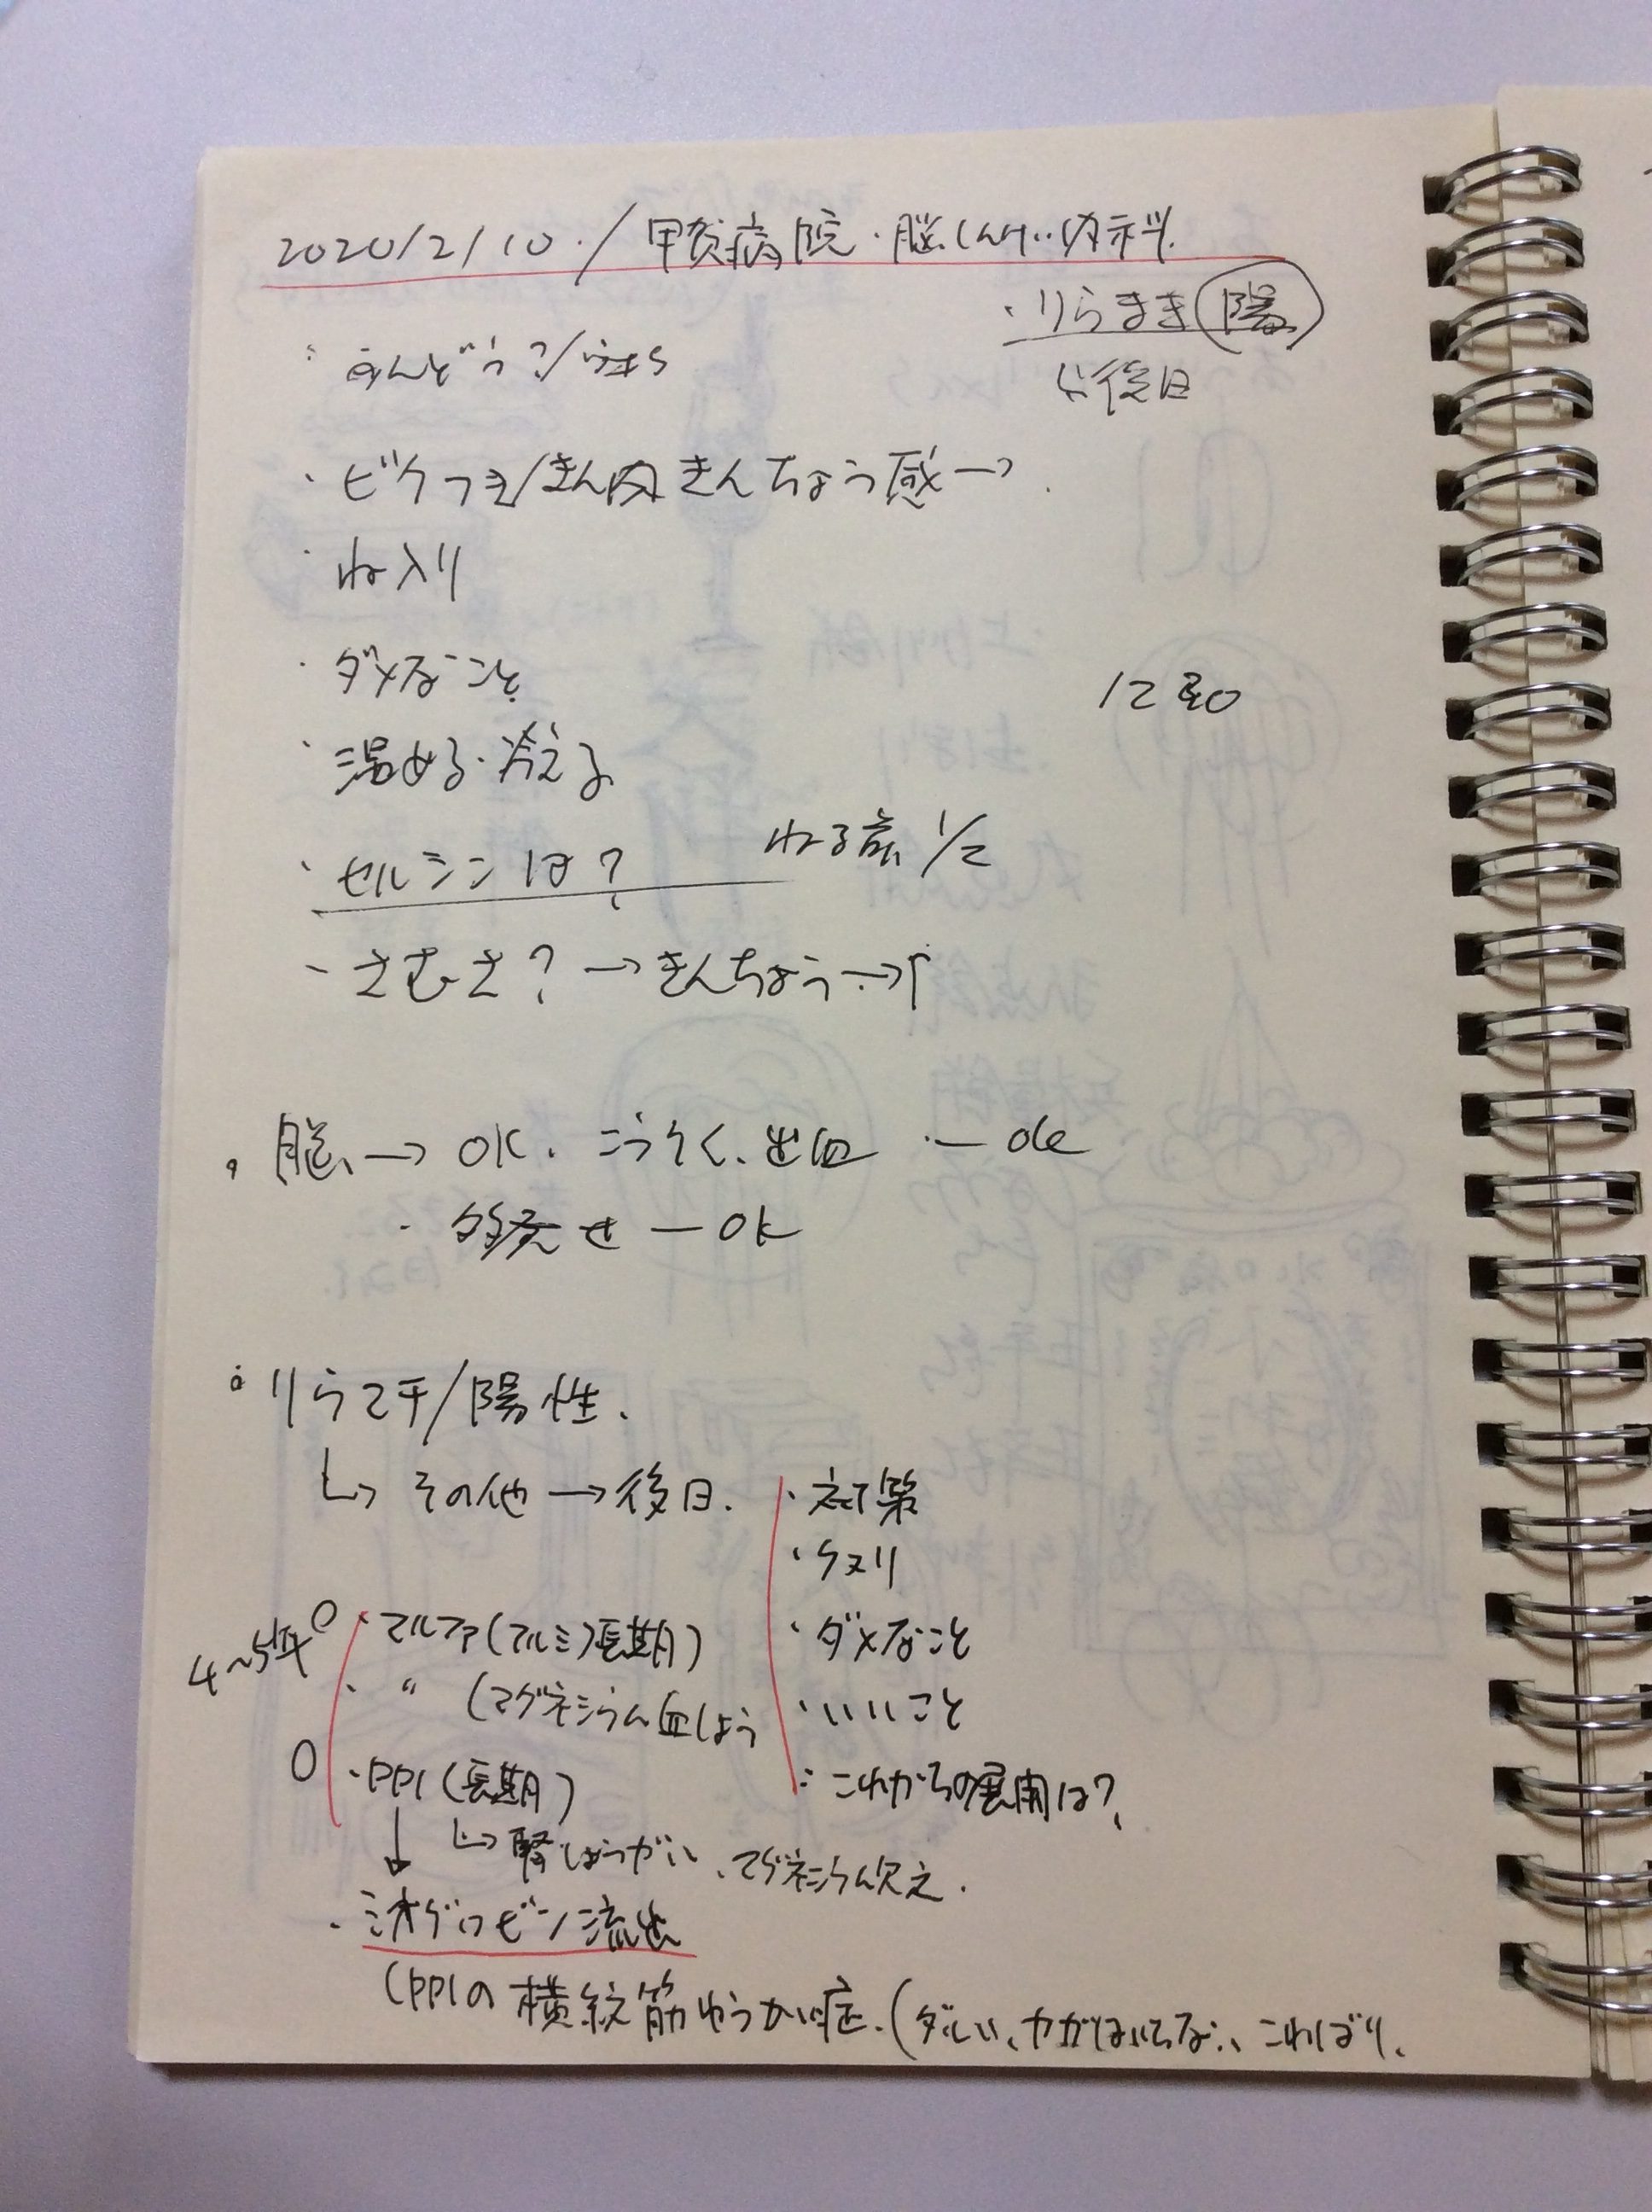 2020/2/10./甲賀病院・脳しんけい内科
・りらまき 陽
↳後日
・うんどう?/
・ビクつき/きん肉きんちょう感→
・ね入り
・ダメなこと
12
・温める・冷える
・セルシンは? ねる前 1/2
・さむさ?→きんちょう→↑
・脳→OK. こうそく、出血 ー ok
・多発せ ー OK
・リウマチ/陽性.
↳ その他 → 後日.
・対策
・クスリ
・ダメなこと
・いいこと
・これからの展開は?
4〜5年
・マルファ(アルミ)長期)
・〃 (マグネシウム血しょう
・PPI(長期)
↳腎しょうがい、マグネシウム欠乏.
↓
・ミオグロビン流出
(PPIの横紋筋ゆうかい症.(ダルい、力がはいらない、こわばり、